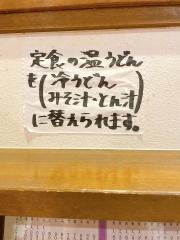 定食の温うどん
を(冷うどん
みそ汁・とん汁)
に替えられます。